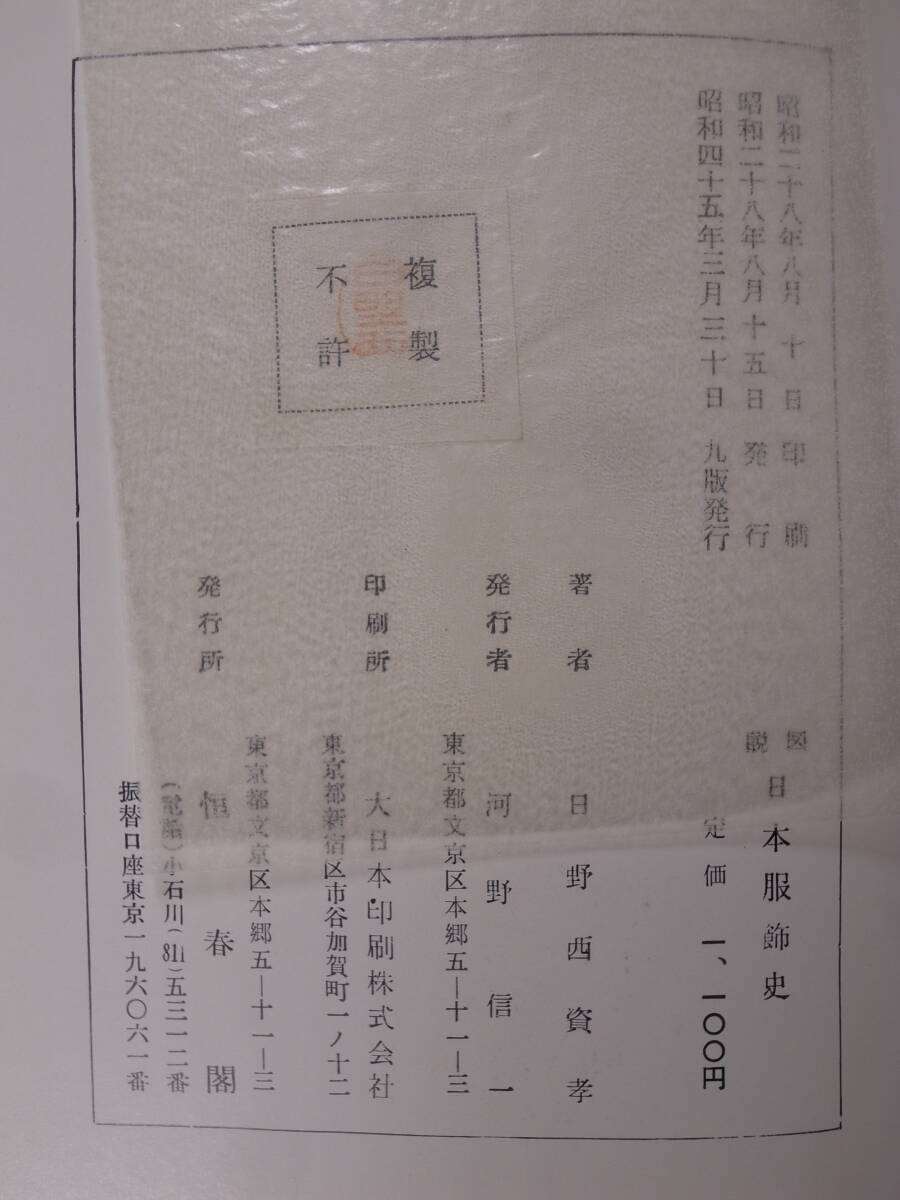 昭和二十八年八月十日 印刷
昭和二十八年八月十五日 発行
昭和四十五年三月三十日 九版発行
複製
不許
図説 日本服飾史
定価 一、一〇〇円
著者 日野西資孝
発行者 河野信一
東京都文京区本郷五―十一―三
印刷所 大日本印刷株式会社
東京都新宿区市谷加賀町一ノ十二
東京都文京区本郷五―十一―三
発行所 恒春閣
(電話)小石川(811)五三一二番
振替口座東京一九六〇六一番